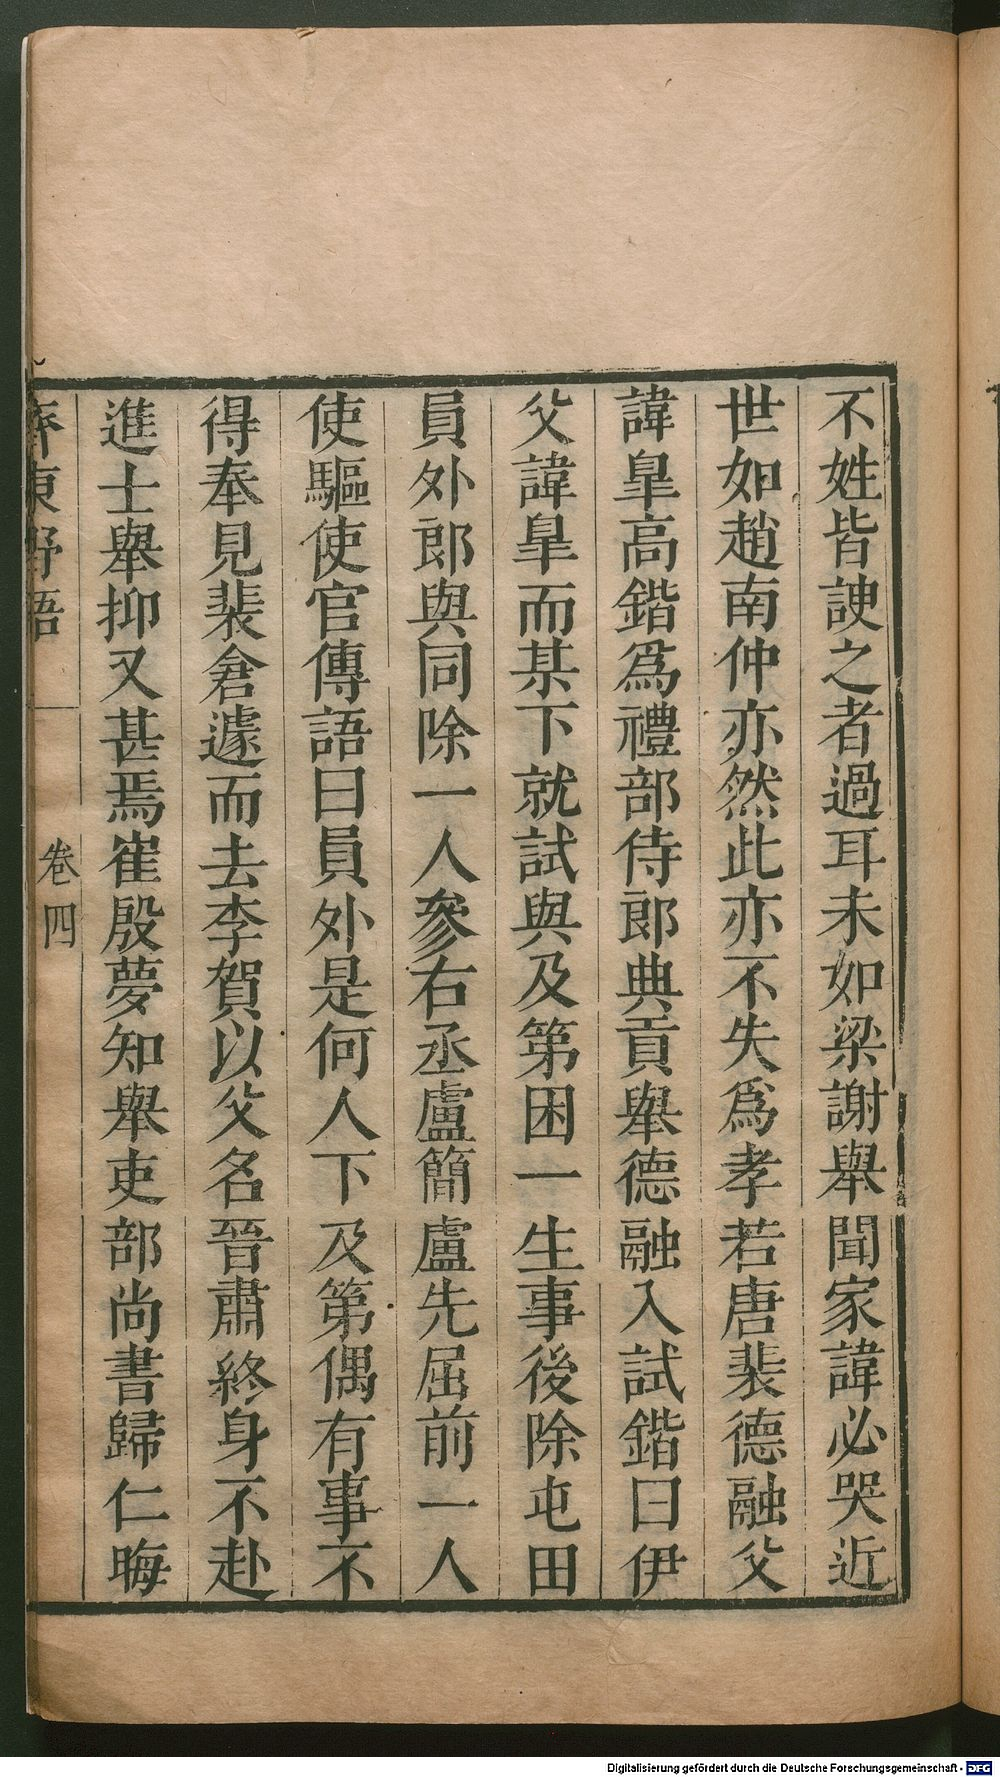 不姓皆諛之者過耳未如梁謝舉聞家諱必哭近
世如趙南仲亦然此亦不失爲孝若唐裴德融父
諱臯高鍇爲禮部侍郎典貢舉德融入試鍇曰伊
父諱臯而某下就試與及第困一生事後除屯田
員外郎與同除一人參右丞盧簡盧先屈前一人
使驅使官傳語曰員外是何人下及第偶有事不
得奉見裴倉遽而去李賀以父名晉肅終身不赴
進士舉抑又甚焉崔殷夢知舉吏部尚書歸仁晦
齊東野語 卷四
Digitalisierung gefördert durch die Deutsche Forschungsgemeinschaft - DFG